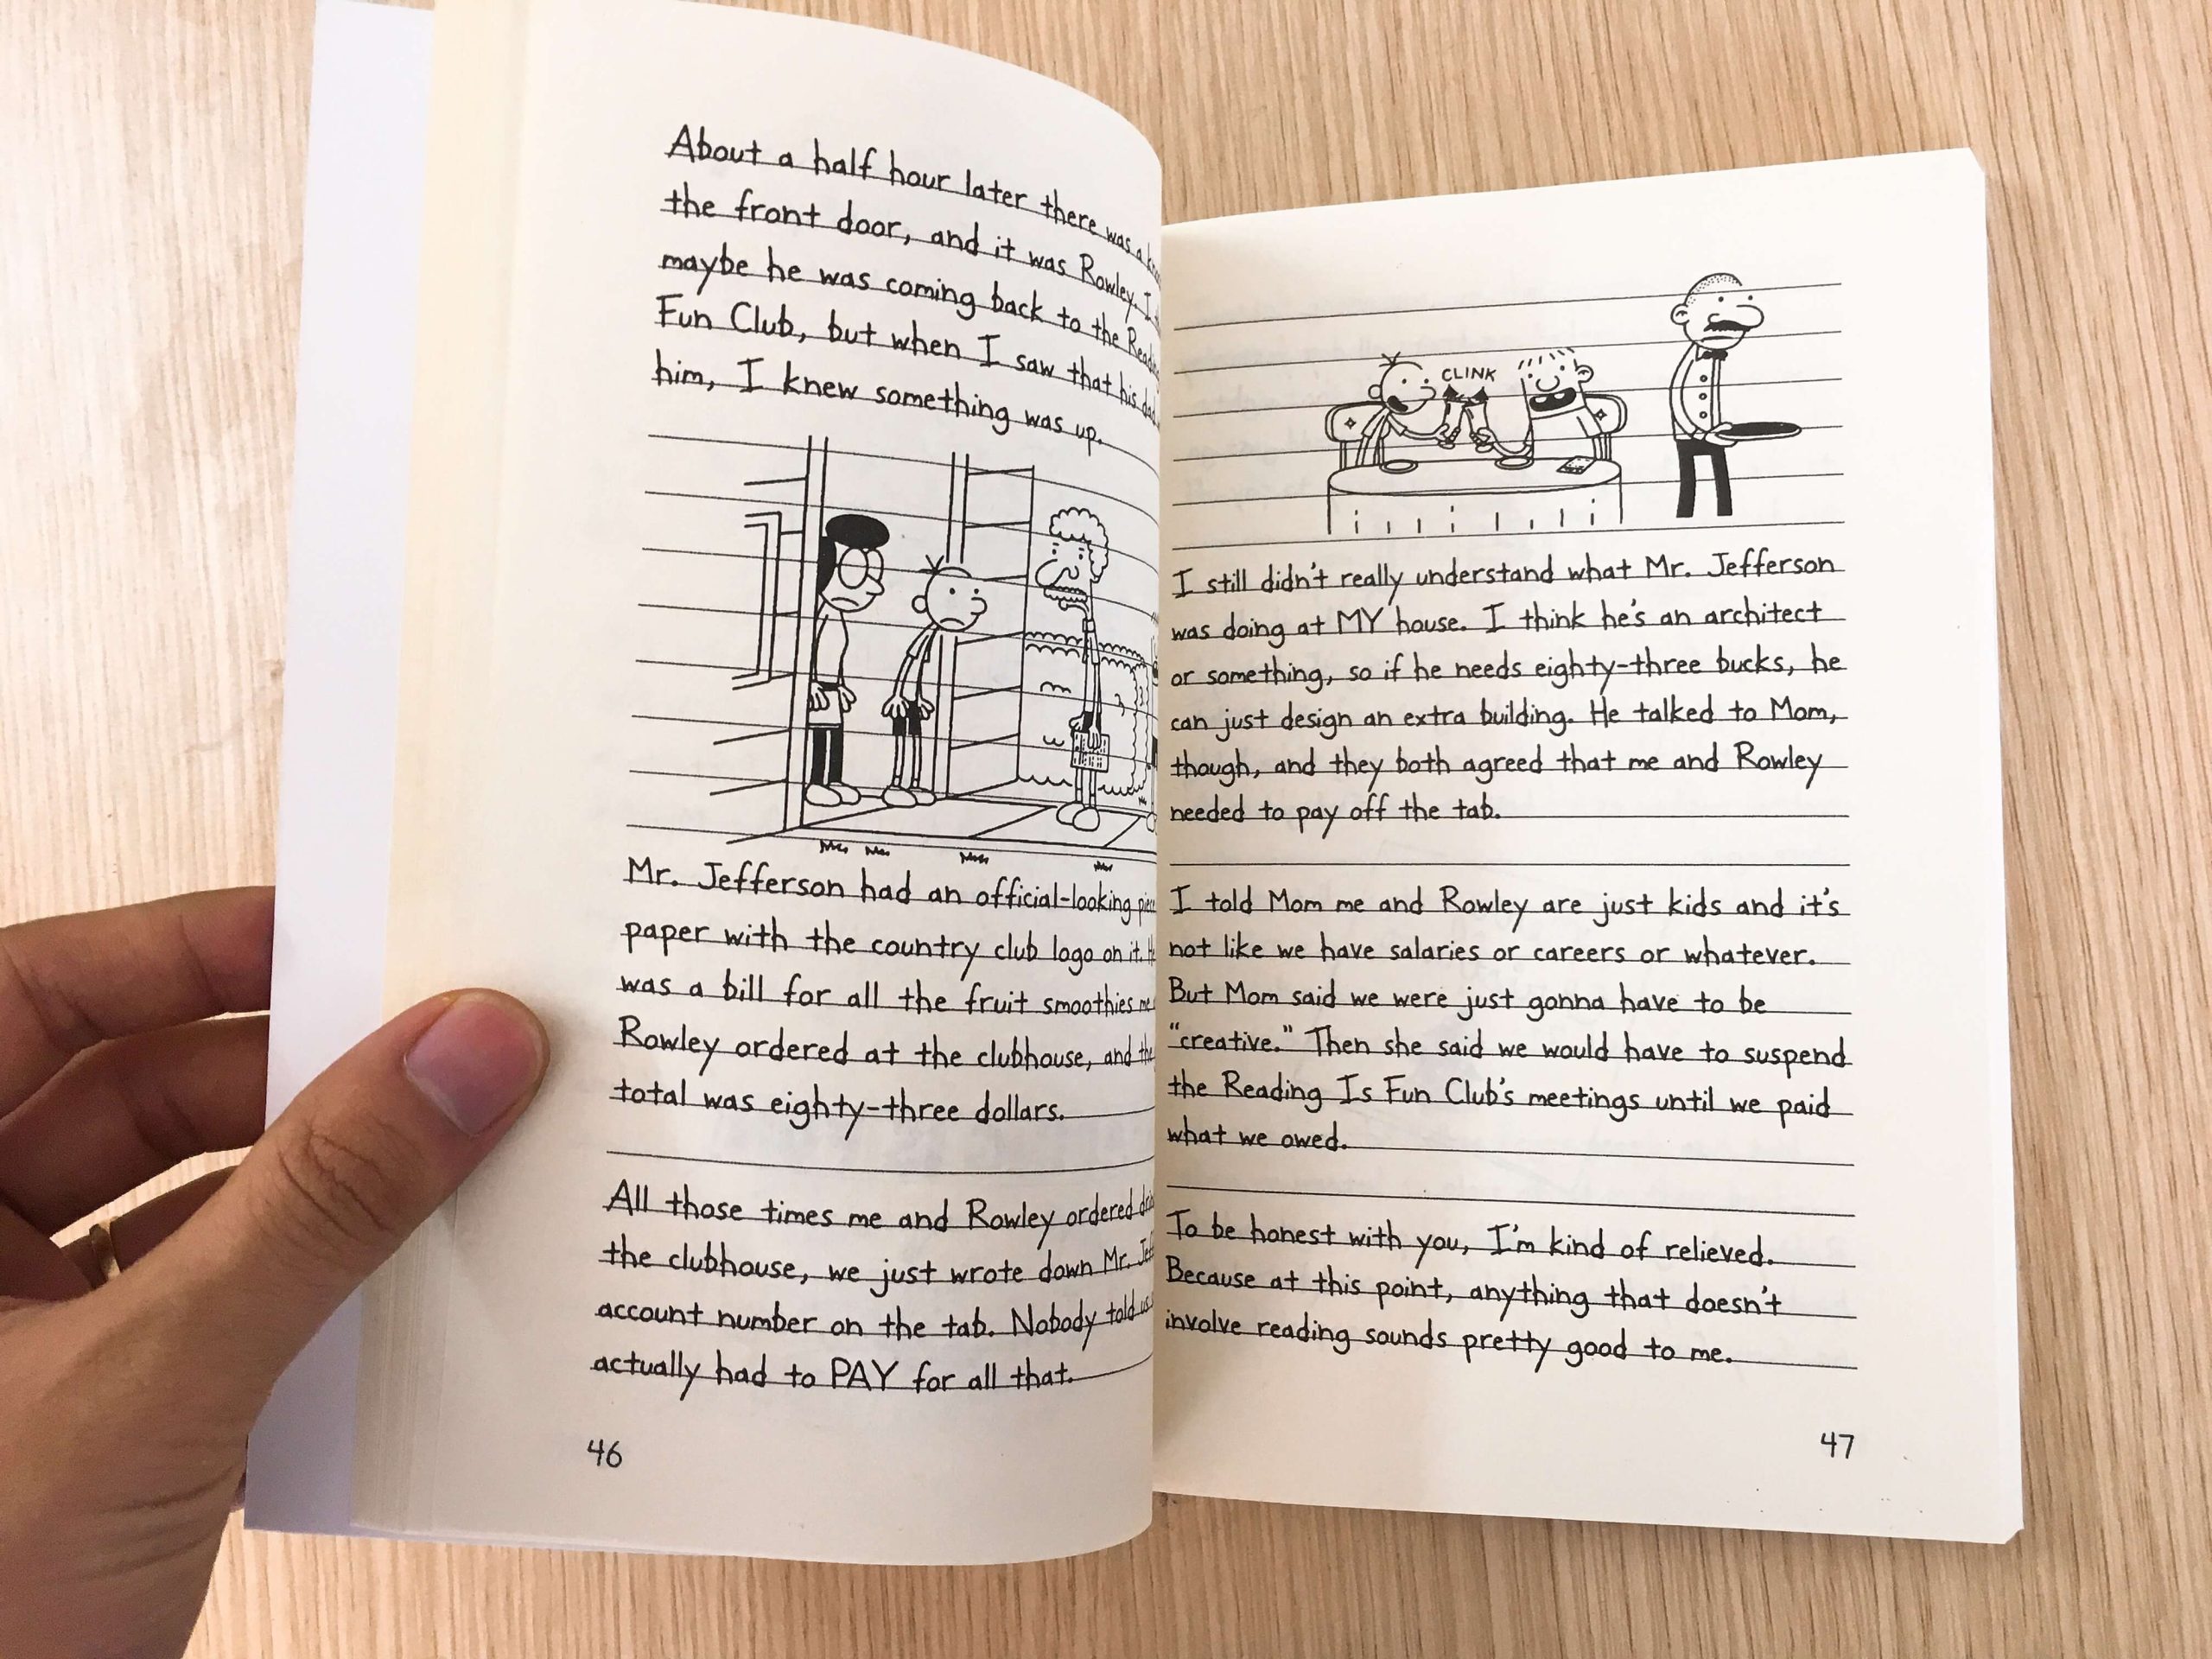 About a half hour later there was a
the front door, and it was Rowley. I
maybe he was coming back to the
Fun Club, but when I saw that his
him, I knew something was up.
Mr. Jefferson had an official-looking
paper with the country club logo on it.
was a bill for all the fruit smoothies me
Rowley ordered at the clubhouse, and
total was eighty-three dollars.
All those times me and Rowley ordered
the clubhouse, we just wrote down Mr.
account number on the tab. Nobody told
actually had to PAY for all that.
46
CLINK
I still didn't really understand what Mr. Jefferson
was doing at MY house. I think he's an architect
or something, so if he needs eighty-three bucks, he
can just design an extra building. He talked to Mom,
though, and they both agreed that me and Rowley
needed to pay off the tab.
I told Mom me and Rowley are just kids and it's
not like we have salaries or careers or whatever.
But Mom said we were just gonna have to be
"creative." Then she said we would have to suspend
the Reading Is Fun Club's meetings until we paid
what we owed.
To be honest with you, I'm kind of relieved.
Because at this point, anything that doesn't
involve reading sounds pretty good to me.
47